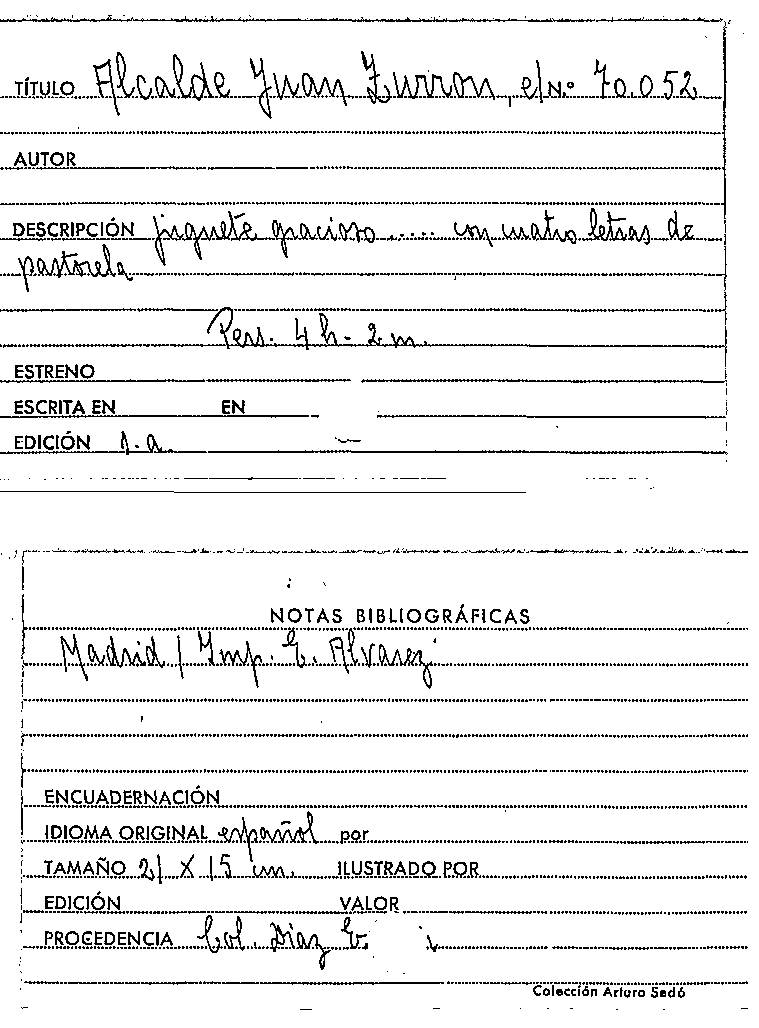 TÍTULO Alcalde Juan Zurron, el Nº 70.052
AUTOR
DESCRIPCIÓN juguete gracioso ..... con cuatro letras de
pastorela
Pers. 4 h - 2 m.
ESTRENO
ESCRITA EN EN
EDICIÓN s.a.
NOTAS BIBLIOGRÁFICAS
Madrid / Imp. E. Alvarez
ENCUADERNACIÓN
IDIOMA ORIGINAL español por
TAMAÑO 21 X 15 cm. ILUSTRADO POR
EDICIÓN VALOR
PROCEDENCIA Col. Diaz E.
Colección Arturo Sedó